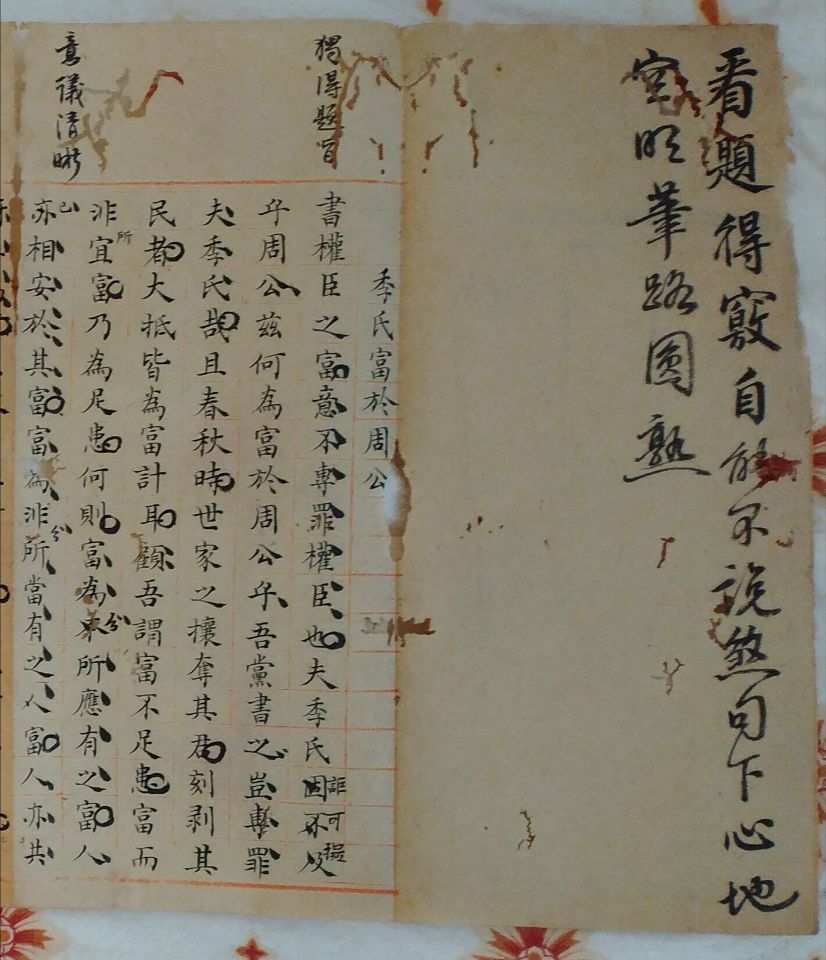 看題得竅自能不說煞句下心地
空明筆路圓熟
獨得題旨
意議清晰
季氏富於周公
書權臣之富意不專罪權臣也夫季氏固不及
詎可擬
乎周公茲何為富於周公乎吾黨書之豈專罪
夫季氏哉且春秋時世家之攘奪其君刻剝其
民者大抵皆為富計耳顧吾謂富不足患富而
所
非宜富乃為足患何則富為所應有之富人
分
已
亦相安於其富富為非所當有之人富人亦共
分